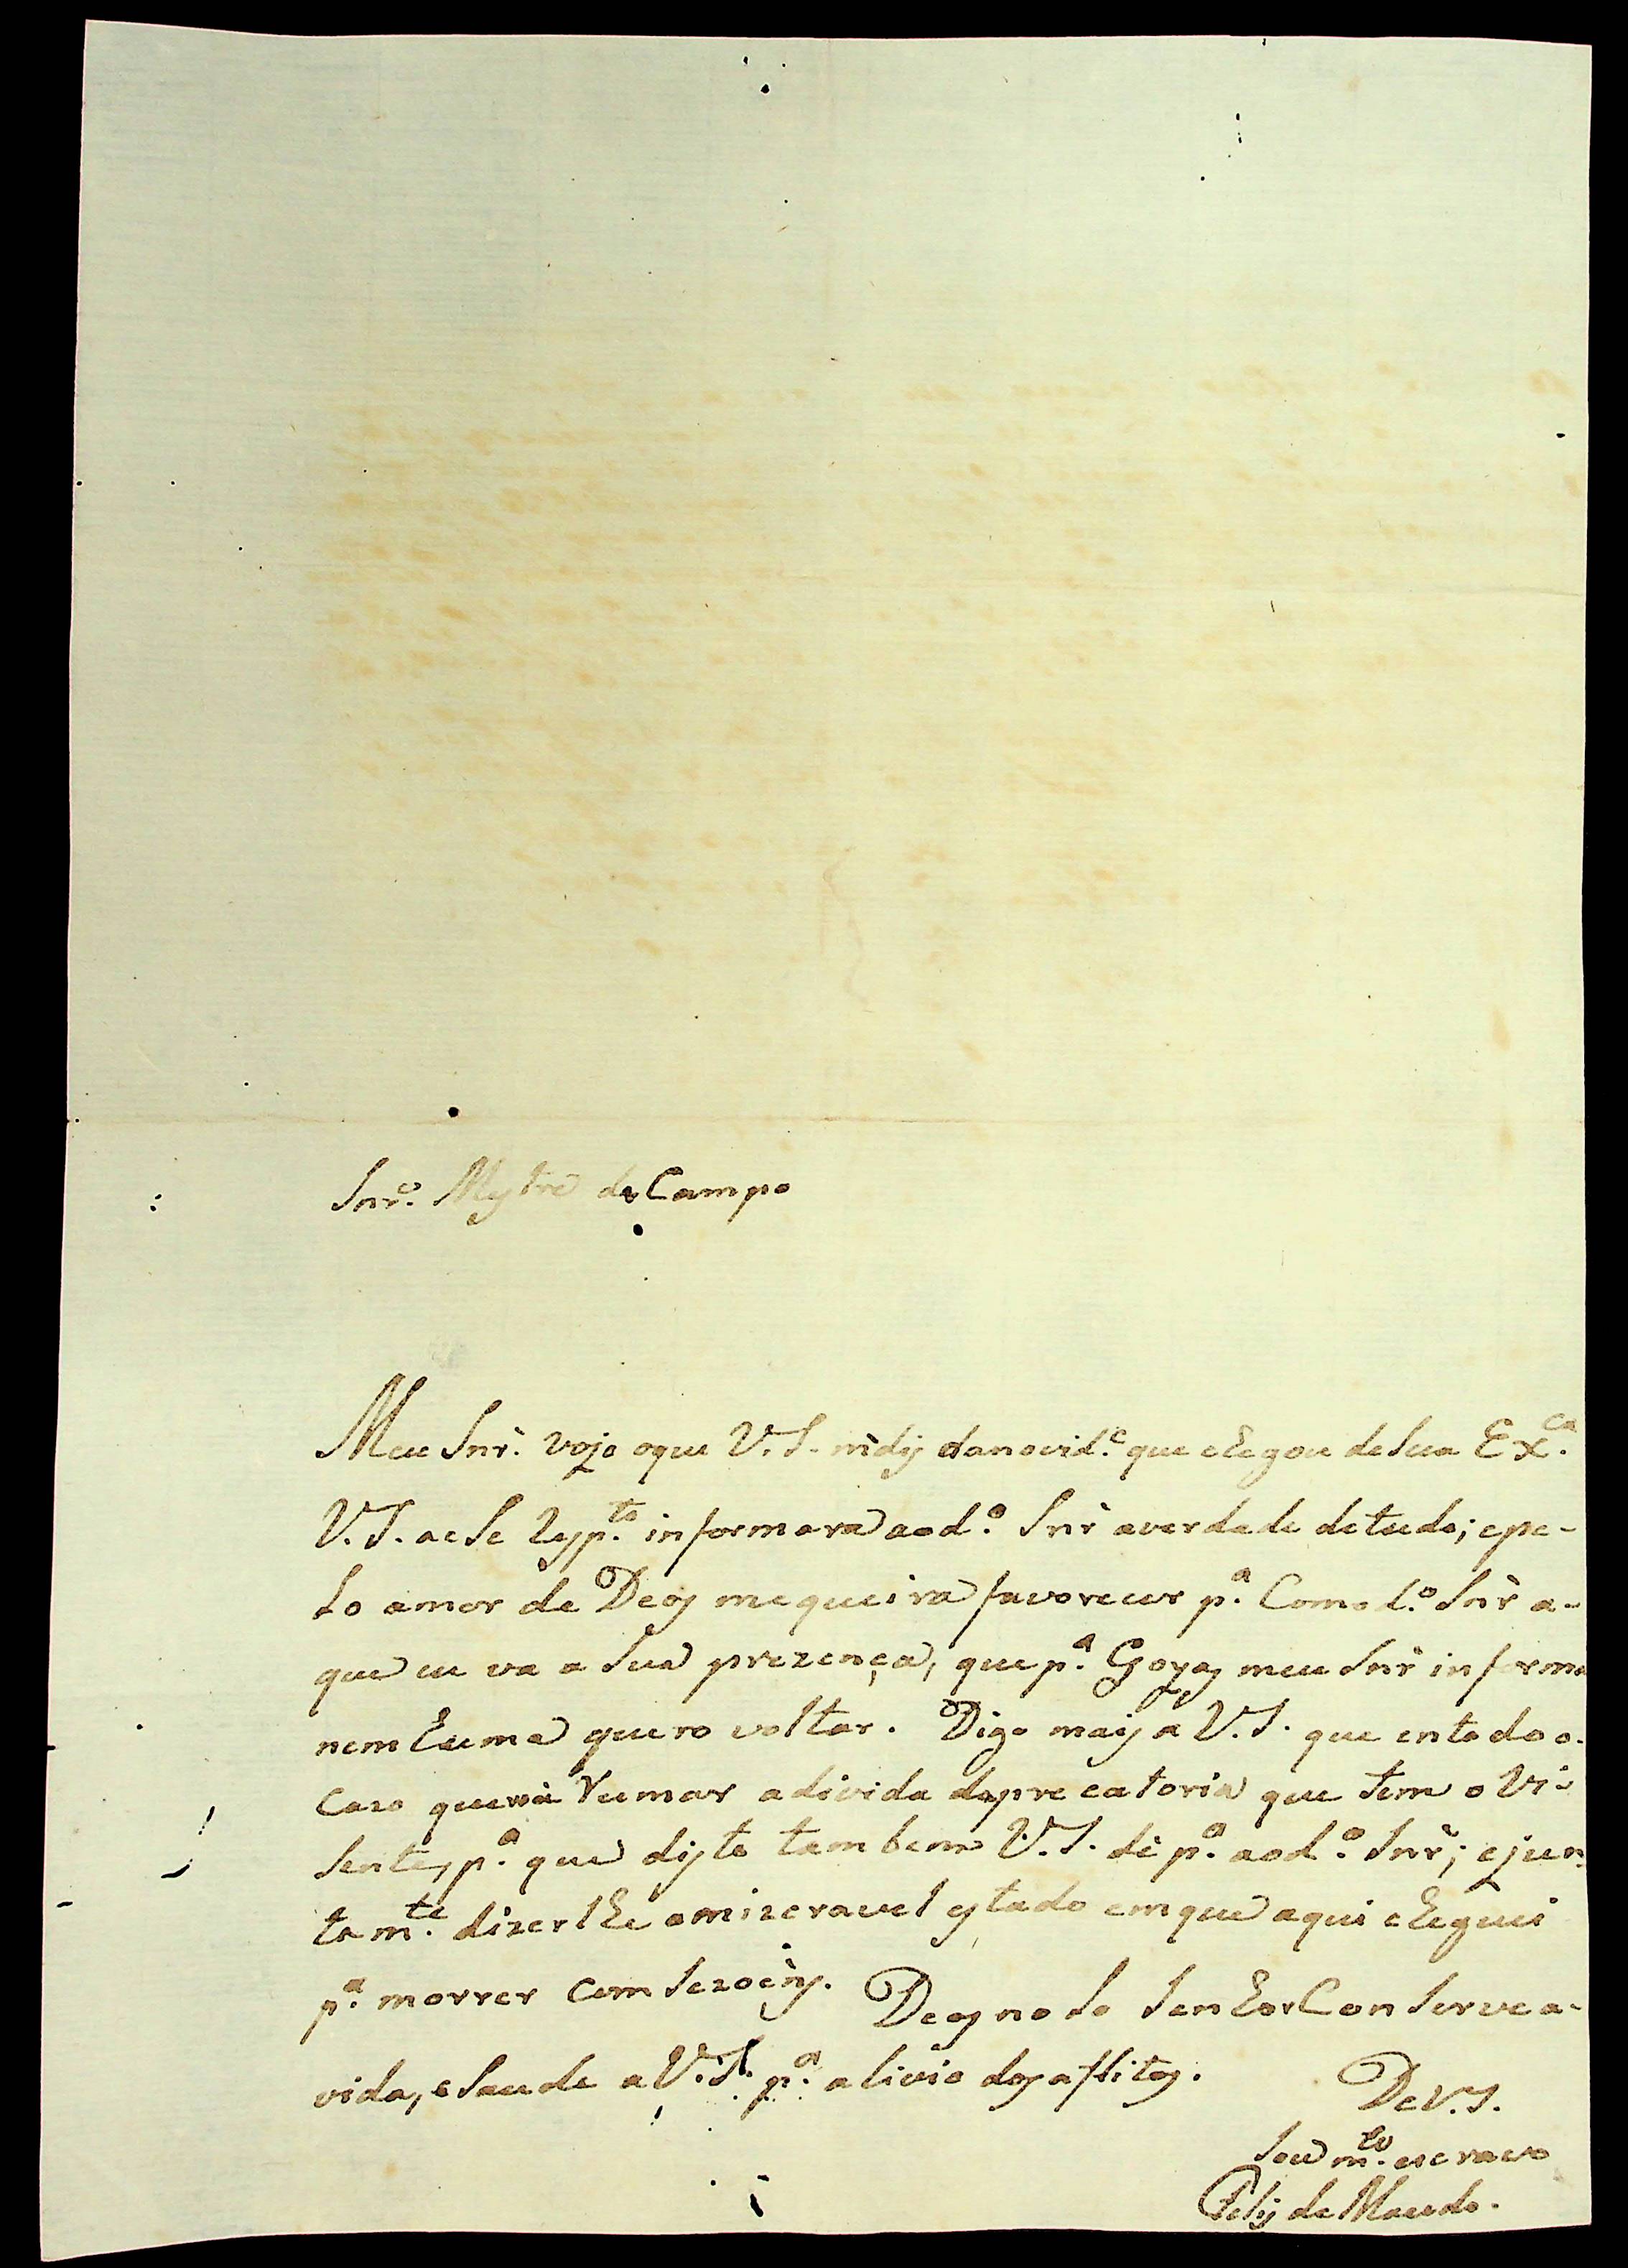 Snr.º Mystre de Campo
Meu Snr̃. vejo oque V. S. mˋdiz danovid.ᵉ que chegou desua Ex.ᶜᵃ
V. S. aese Resp.ᵗᵒ informara aod.º Snr̃ averdade detudo; epe-
lo amor de Deos mequeira favorecer p.ᵃ Comod.º Snr̃ a-
que eu va a Sua prezença, que p.ᵃ Goyas meu Snr̃ in forma
nem huma quero voltar. Digo mais a V. S. que entodo o.
Cazo queria Rumar adivida deprecatoria que tem o Vi-
sente, p.ᵃ que disto tam bem V. S. dè p.ᵃ aod.º Snr̃; ejun-
tam.ᵗᵉ dizerlhe omizeravel estado emque aqui cheguei
p.ᵃ morrer com Sezoẽns. Deos noso Senhor Conservea-
vida, e Saude a V. S. p.ᵃ alivio dos aflitos.
DeV. S.
Seu m.ᵗᵒ escravo
Felis de Macedo.